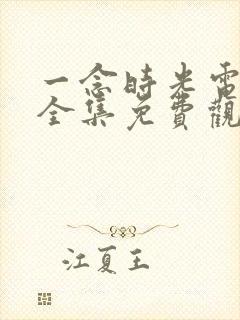 一念時光電
全集免費觀
江夏王